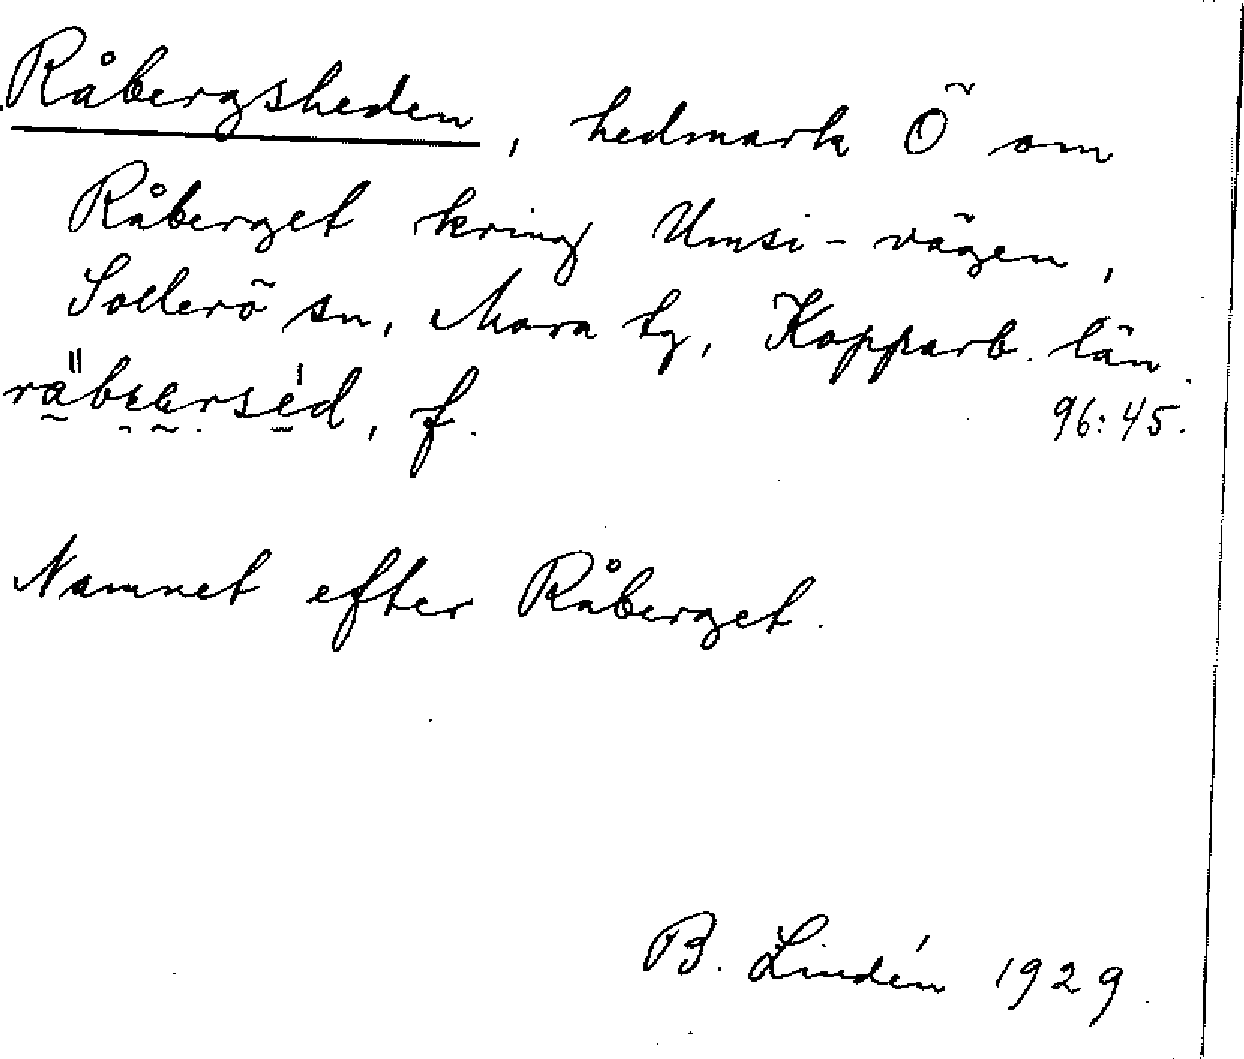 Råbergsheden, hedmark Ö om
Råberget kring Umsi-vägen,
Sollerö sn, Mora tg, Kopparb. län.
f. 96:45.
Namnet efter Råberget.
B. Lindén 1929.